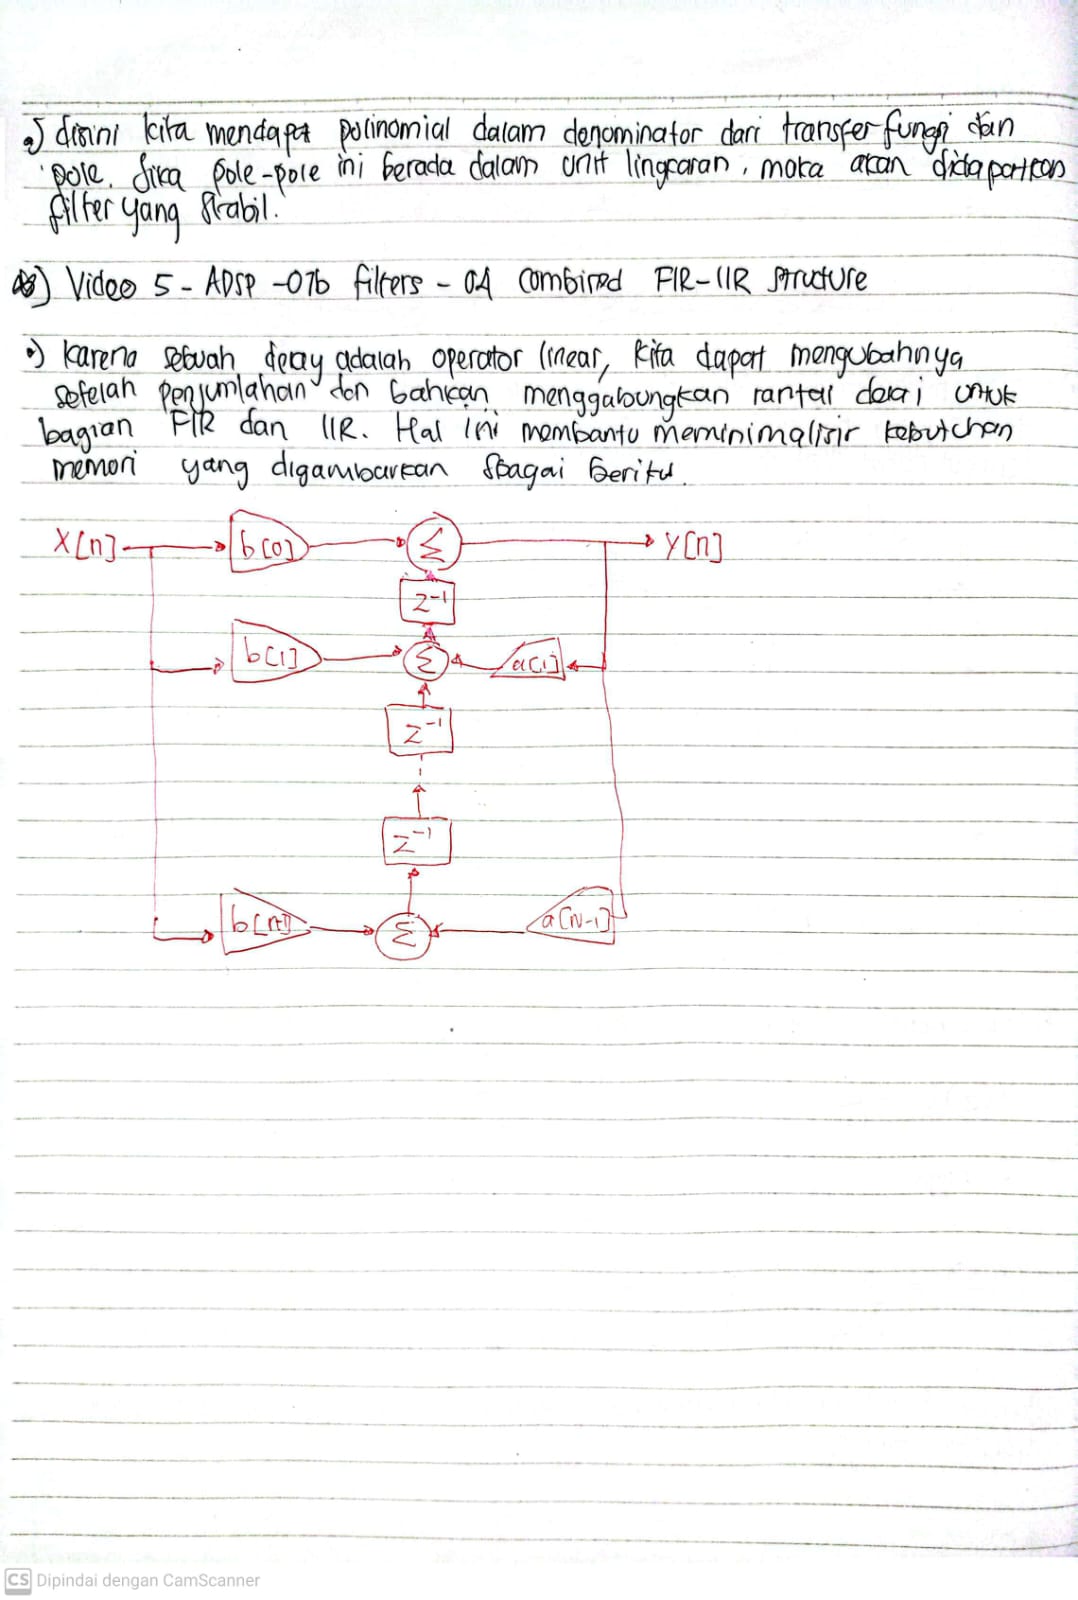 disini kita mendapat polinomial dalam denominator dari transfer fungsi dan
pole. Jika pole-pole ini berada dalam unit lingkaran, maka akan didapatkan
filter yang stabil.
Video 5 - ADSP -07b filters - 04 Combined FIR-IIR Structure
•) Karena sebuah delay adalah operator linear, kita dapat mengubahnya
setelah penjumlahan dan bahkan menggabungkan rantai delai untuk
bagian FIR dan IIR. Hal ini membantu meminimalisir kebutuhan
memori yang digambarkan sbagai beriku.
X[n] b[0] Σ Y[n]
z⁻¹
b[1] Σ a[1]
z⁻¹
z⁻¹
Σ a[N-1]
CS Dipindai dengan CamScanner